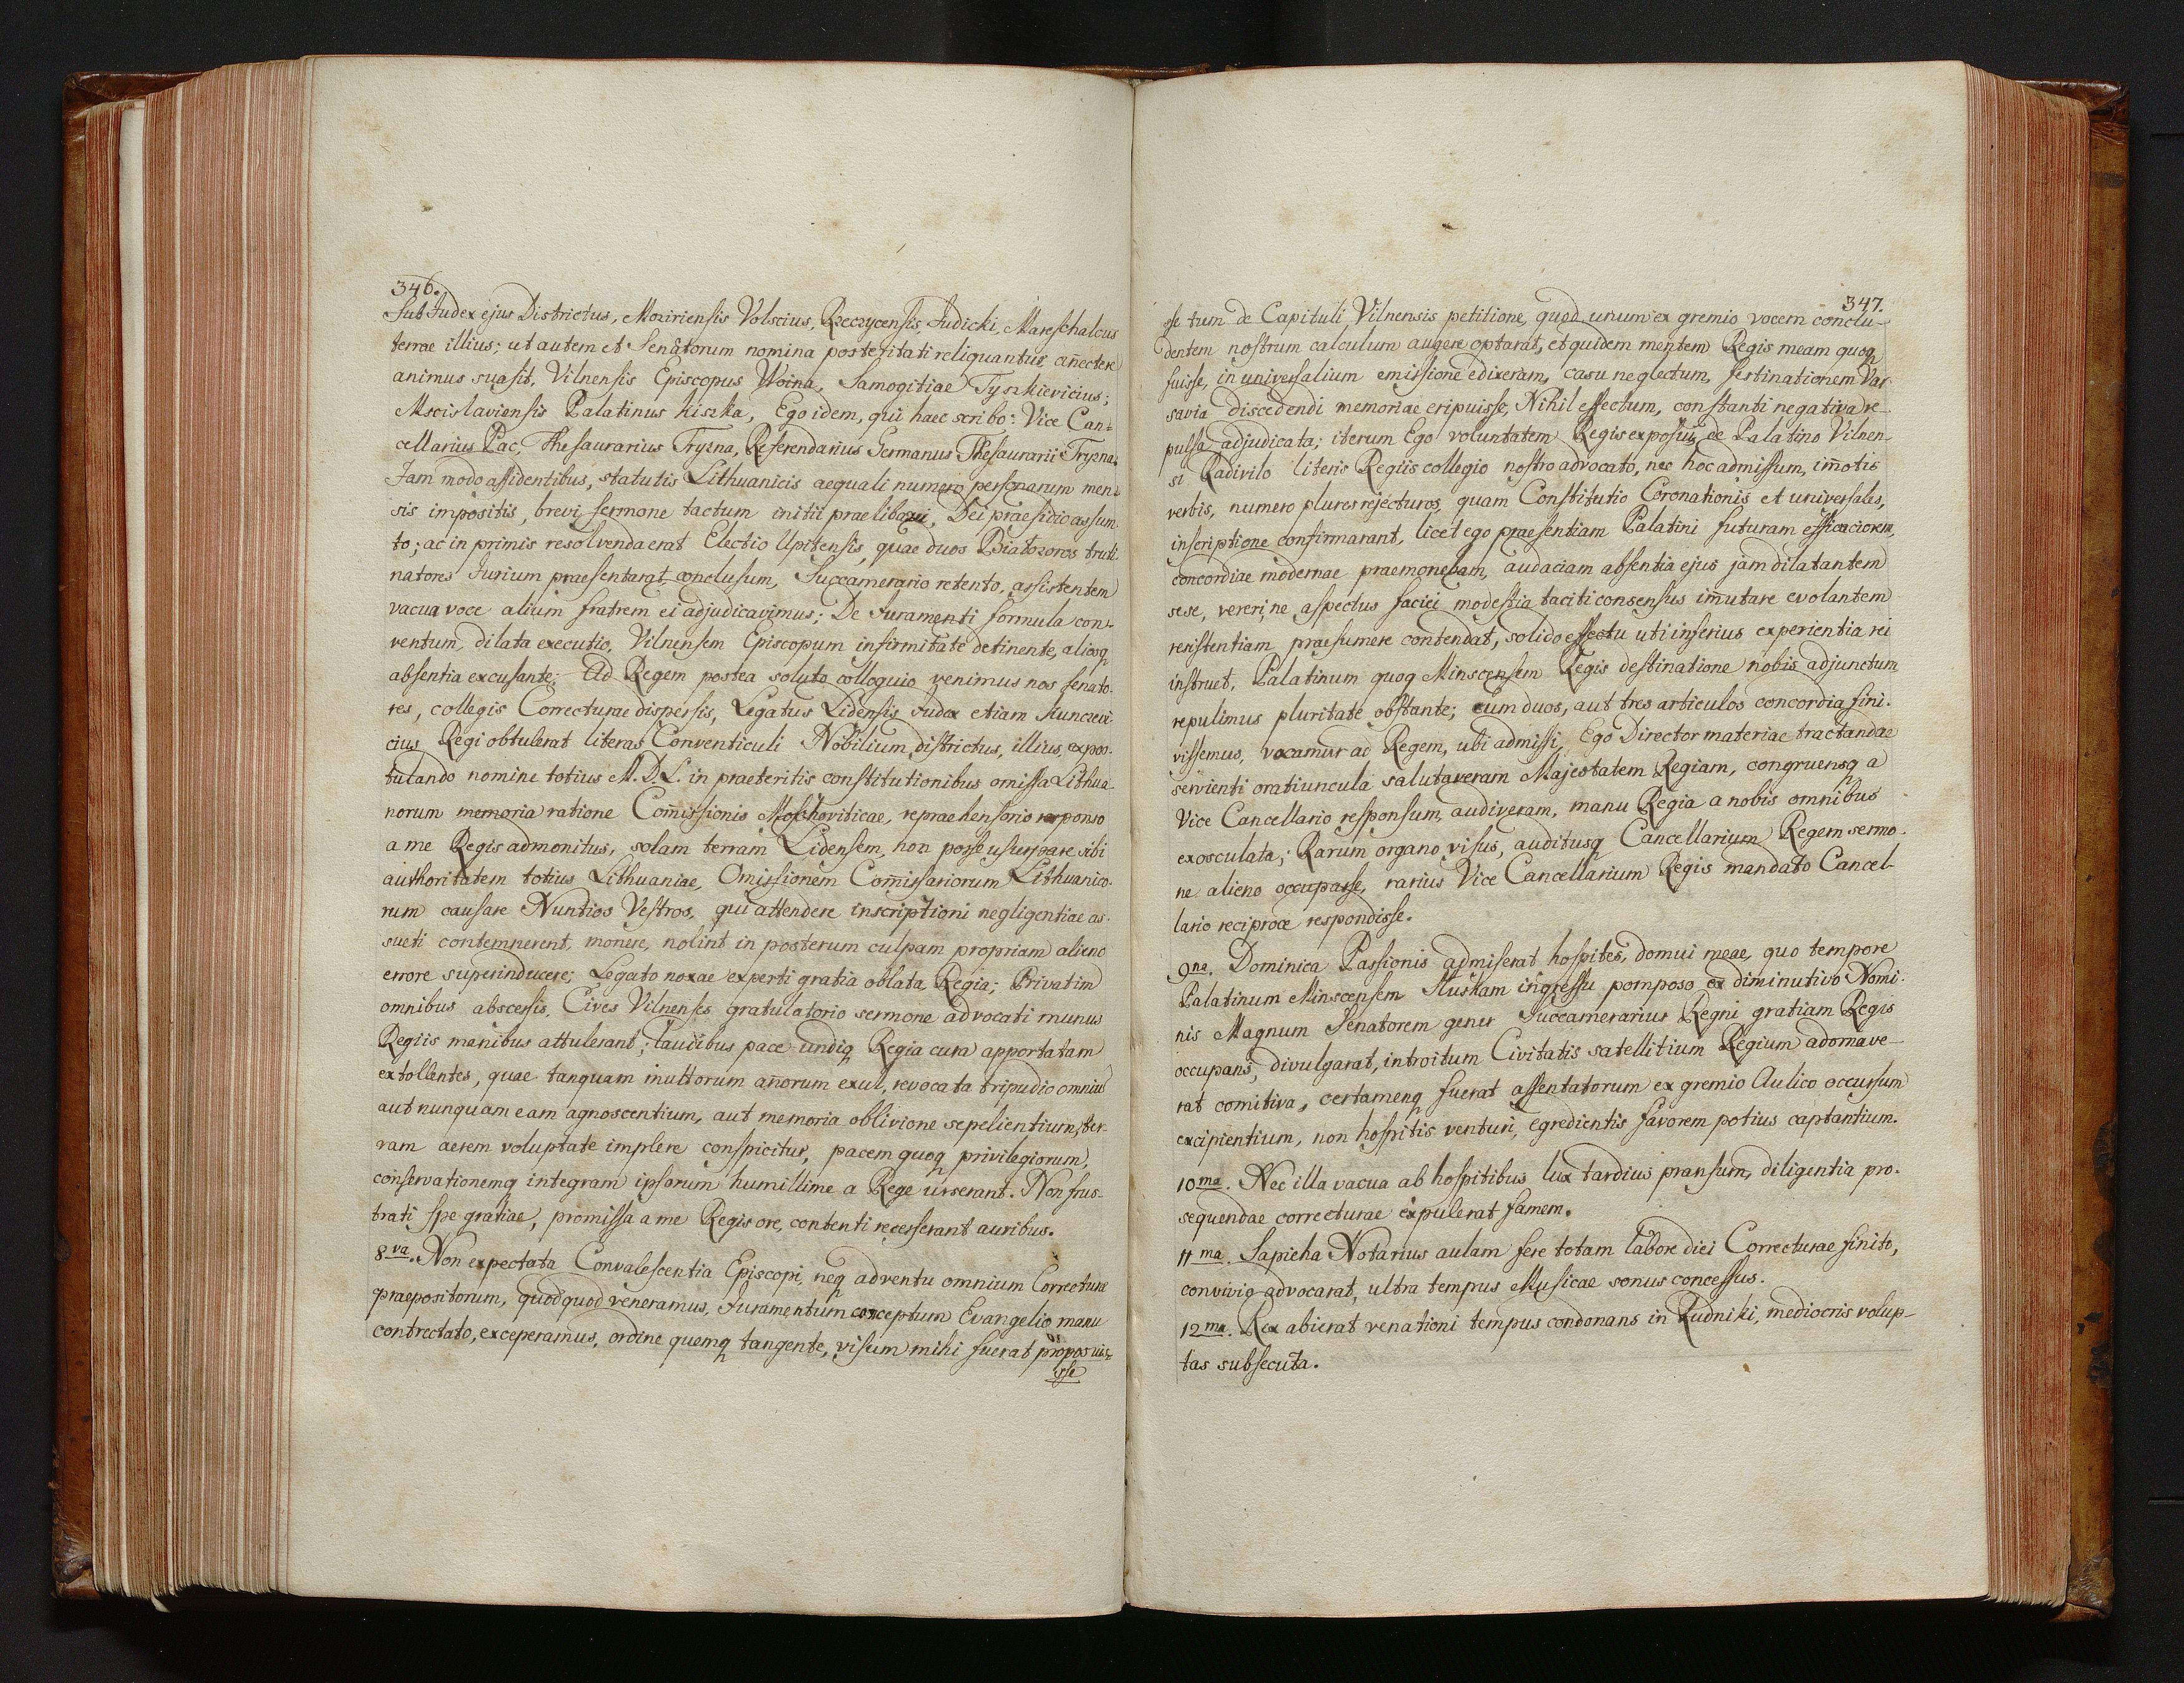 346.
SubJudex ejus Districtus, Moziriensis Volscius, Rzeczycensis, Judicki, Mareschalcus
terrae illius; ut autem et Senatorum nomina posteritati reliquantur, añectere
animus suasit, Vilnensis Episcopus Woina, Samogitiae Tyszkievicius;
Mscislaviensis Palatinus Kiszka, Ego idem, qui haec scribo: Vice Can-
cellarius Pac, Thesaurarius Tryzna, Referendarius Germanus Thesaurarii Tryzna.
Jam modo assidentibus, statutis Lithuanicis aequali numero personarum men-
sis impositis, brevi sermone tactum initii praelibavi, Dei praesidio assum-
to; ac in primis resolvenda erat Electio Upitensis, quae duos Białozoros truti-
natores Jurium praesentarat conclusum, Succamerario retento, assistentem
vacua voce alium fratrem ei adjudicavimus; De Juramenti formula con-
ventum, dilata executio, Vilnensem Episcopum infirmitate detinente, aliosq
absentia excusante; Ad Regem postea soluto colloquio venimus nos senato-
res, collegis Correcturae dispersis, Legatus Lidensis Judex etiam Kuncevi-
cius Regi obtulerat literas Conventiculi Nobilium districtus, illius, expos-
tulando nomine totius M.D.L. in praeteritis constitutionibus omissa Lithua-
norum memoria ratione Com̃issionis Moschoviticae, repraehensorio responso
a me Regis admonitus, solam terram Lidensem, non posse usurpare sibi
authoritatem totius Lithuaniae, Omissionem Com̃issariorum Lithuanico-
rum causare Nuntios Vestros, qui attendere inscriptioni negligentiae as-
sueti contemnerent, monere, nolint in posterum culpam propriam alieno
errore superinducere; Legato noxae experti gratia oblata Regia; Privatim
omnibus abscessis, Cives Vilnenses gratulatorio sermone advocati munus
Regiis manibus attulerant; laudibus pace undiq Regia cura apportatam
extollentes, quae tanquam multorum añorum exul, revocata tripudio omniũ
aut nunquam eam agnoscentium, aut memoria oblivione sepelientium, ter-
ram aerem voluptate implere conspicitur, pacem quoq privilegiorum,
conservationemq integram ipsorum humillime a Rege urserant. Non frus-
trati spe gratiae, promissa a me Regis ore, contenti recesserant auribus.
8va. Non expectata Convalescentia Episcopi, neq adventu omnium Correcturae
praepositorum, quodquod veneramus, Juramentum conceptum Evangelio manu
contrectato, exceperamus, ordine quemq tangente, visum mihi fuerat proposuis-
sse
347.
sse tum de Capituli Vilnensis petitione, quod unum ex gremio vocem conclu-
dentem nostrum calculum augere optarat, et quidem mentem Regis meam quoq
fuisse, in universalium emissione edixeram, casu neglectum, festinationem Var-
savia discedendi memoriae eripuisse, Nihil effectum, constanti negativa re-
pulsa adjudicata; iterum Ego voluntatem Regis exposui, de Palatino Vilnen-
si Radivilo literis Regiis collegio nostro advocato, nec hoc admissum, im̃otis
verbis, numero plures rejecturos, quam Constitutio Coronationis et universales,
inscriptione confirmarant, licet ego praesentiam Palatini futuram efficaciorem,
concordiae modernae praemonebam, audaciam absentia ejus jam dilatantem
sese, vereri, ne aspectus faciei modestia taciti consensus im̃utare evolantem
resistentiam praesumere contendat, solido effectu uti inferius experientia rei
instruet, Palatinum quoq Minscensem Regis destinatione nobis adjunctum
repulimus pluritate obstante; cum duos, aut tres articulos concordia fini-
vissemus, vocamur ad Regem, ubi admissi, Ego Director materiae tractandae
servienti oratiuncula salutaveram Majestatem Regiam, congruensq a
Vice Cancellario responsum, audiveram, manu Regia a nobis omnibus
exosculata; Rarum organo visus, auditusq Cancellarium Regem sermo-
ne alieno occupasse, rarius Vice Cancellarium Regis mandato Cancel-
lario reciproce respondisse.
9na. Dominica Passionis admiserat hospites, domui meae, quo tempore
Palatinum Minscensem Sluskam ingressu pomposo ex diminutivo Nomi-
nis Magnum Senatorem gener Succamerarius Regni gratiam Regis
occupans, divulgarat, introitum Civitatis satellitium Regium adornave-
rat comitiva, certamenq fuerat assentatorum ex gremio Aulico occursum
excipientium, non hospitis venturi, egredientis favorem potius captantium.
10ma. Nec illa vacua ab hospitibus lux tardius pransum, diligentia pro-
sequendae correcturae expulerat famem.
11ma. Sapieha Notarius aulam fere totam labore diei Correcturae finito,
convivio advocarat, ultra tempus Musicae sonus concessus.
12ma. Rex abierat venationi tempus condonans in Rudniki, mediocris volup-
tas subsecuta.